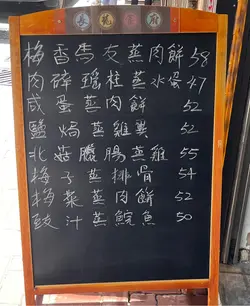 梅香馬友蒸肉餅 58
肉碎瑶柱蒸水蛋 47
咸蛋蒸肉餅 52
鹽焗蒸雞翼 52
北菇臘腸蒸雞 55
梅子蒸排骨 54
梅菜蒸肉餅 52
豉汁蒸鯇魚 50